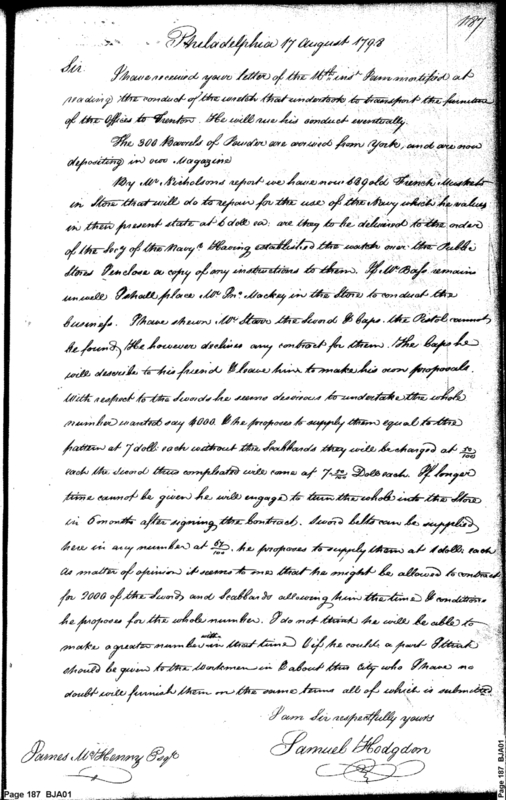 187
Philadelphia 17 August 1798
Sir
I have received your letter of the 16th. inst. I am mortified at
reading the conduct of the wretch that undertook to transport the furniture
of the Offices to Trenton. He will rue his conduct eventually.
The 300 Barrels of Powder are arrived from York, and are now
depositing in our Magazine
By Mr. Nicholsons report we have now 639 old French Muskets
in Store that will do to repair for the use of the Navy which he values
in their present state at 6 doll ea. are they to be delivered to the order
of the Secy of the Navy? Having established the watch over the Public
Stores I enclose a copy of my instructions to them. If Mr Bass remains
unwell I shall place Mr Jno. Mackey in the Store to conduct the
business. I have shewn Mr Starr the Sword & Caps. the Pistol cannot
be found, He however declines any contract for them. The Caps he
will describe to his friend & leave him to make his own proposals.
With respect to the Swords he seems desirous to undertake the whole
number wanted say 4000. & he proposes to supply them equal to the
pattern at 7 doll each without the Scabbards they will be charged at 50/100
each the sword thus compleated will come at 7 50/100 Doll each. If longer
time cannot be given he will engage to turn the whole into the Store
in 6 months after signing the Contract. Sword belts can be supplied
here in any number at 67/100. he proposes to supply them at 1 dolls each
As matter of opinion it seems to me that he might be allowed to contract
for 2000 of the Swords and Scabbards allowing him the time & conditions
he proposes for the whole number. I do not think he will be able to
make a greater number within that time & if he could a part I think
should be given to the Workmen in & about this City who I have no
doubt will furnish them on the same terms all of which is submitted.
I am Sir respectfully yours
Samuel Hodgdon
James McHenry Esqr.
Page 187 BJA01
Page 187 BJA01